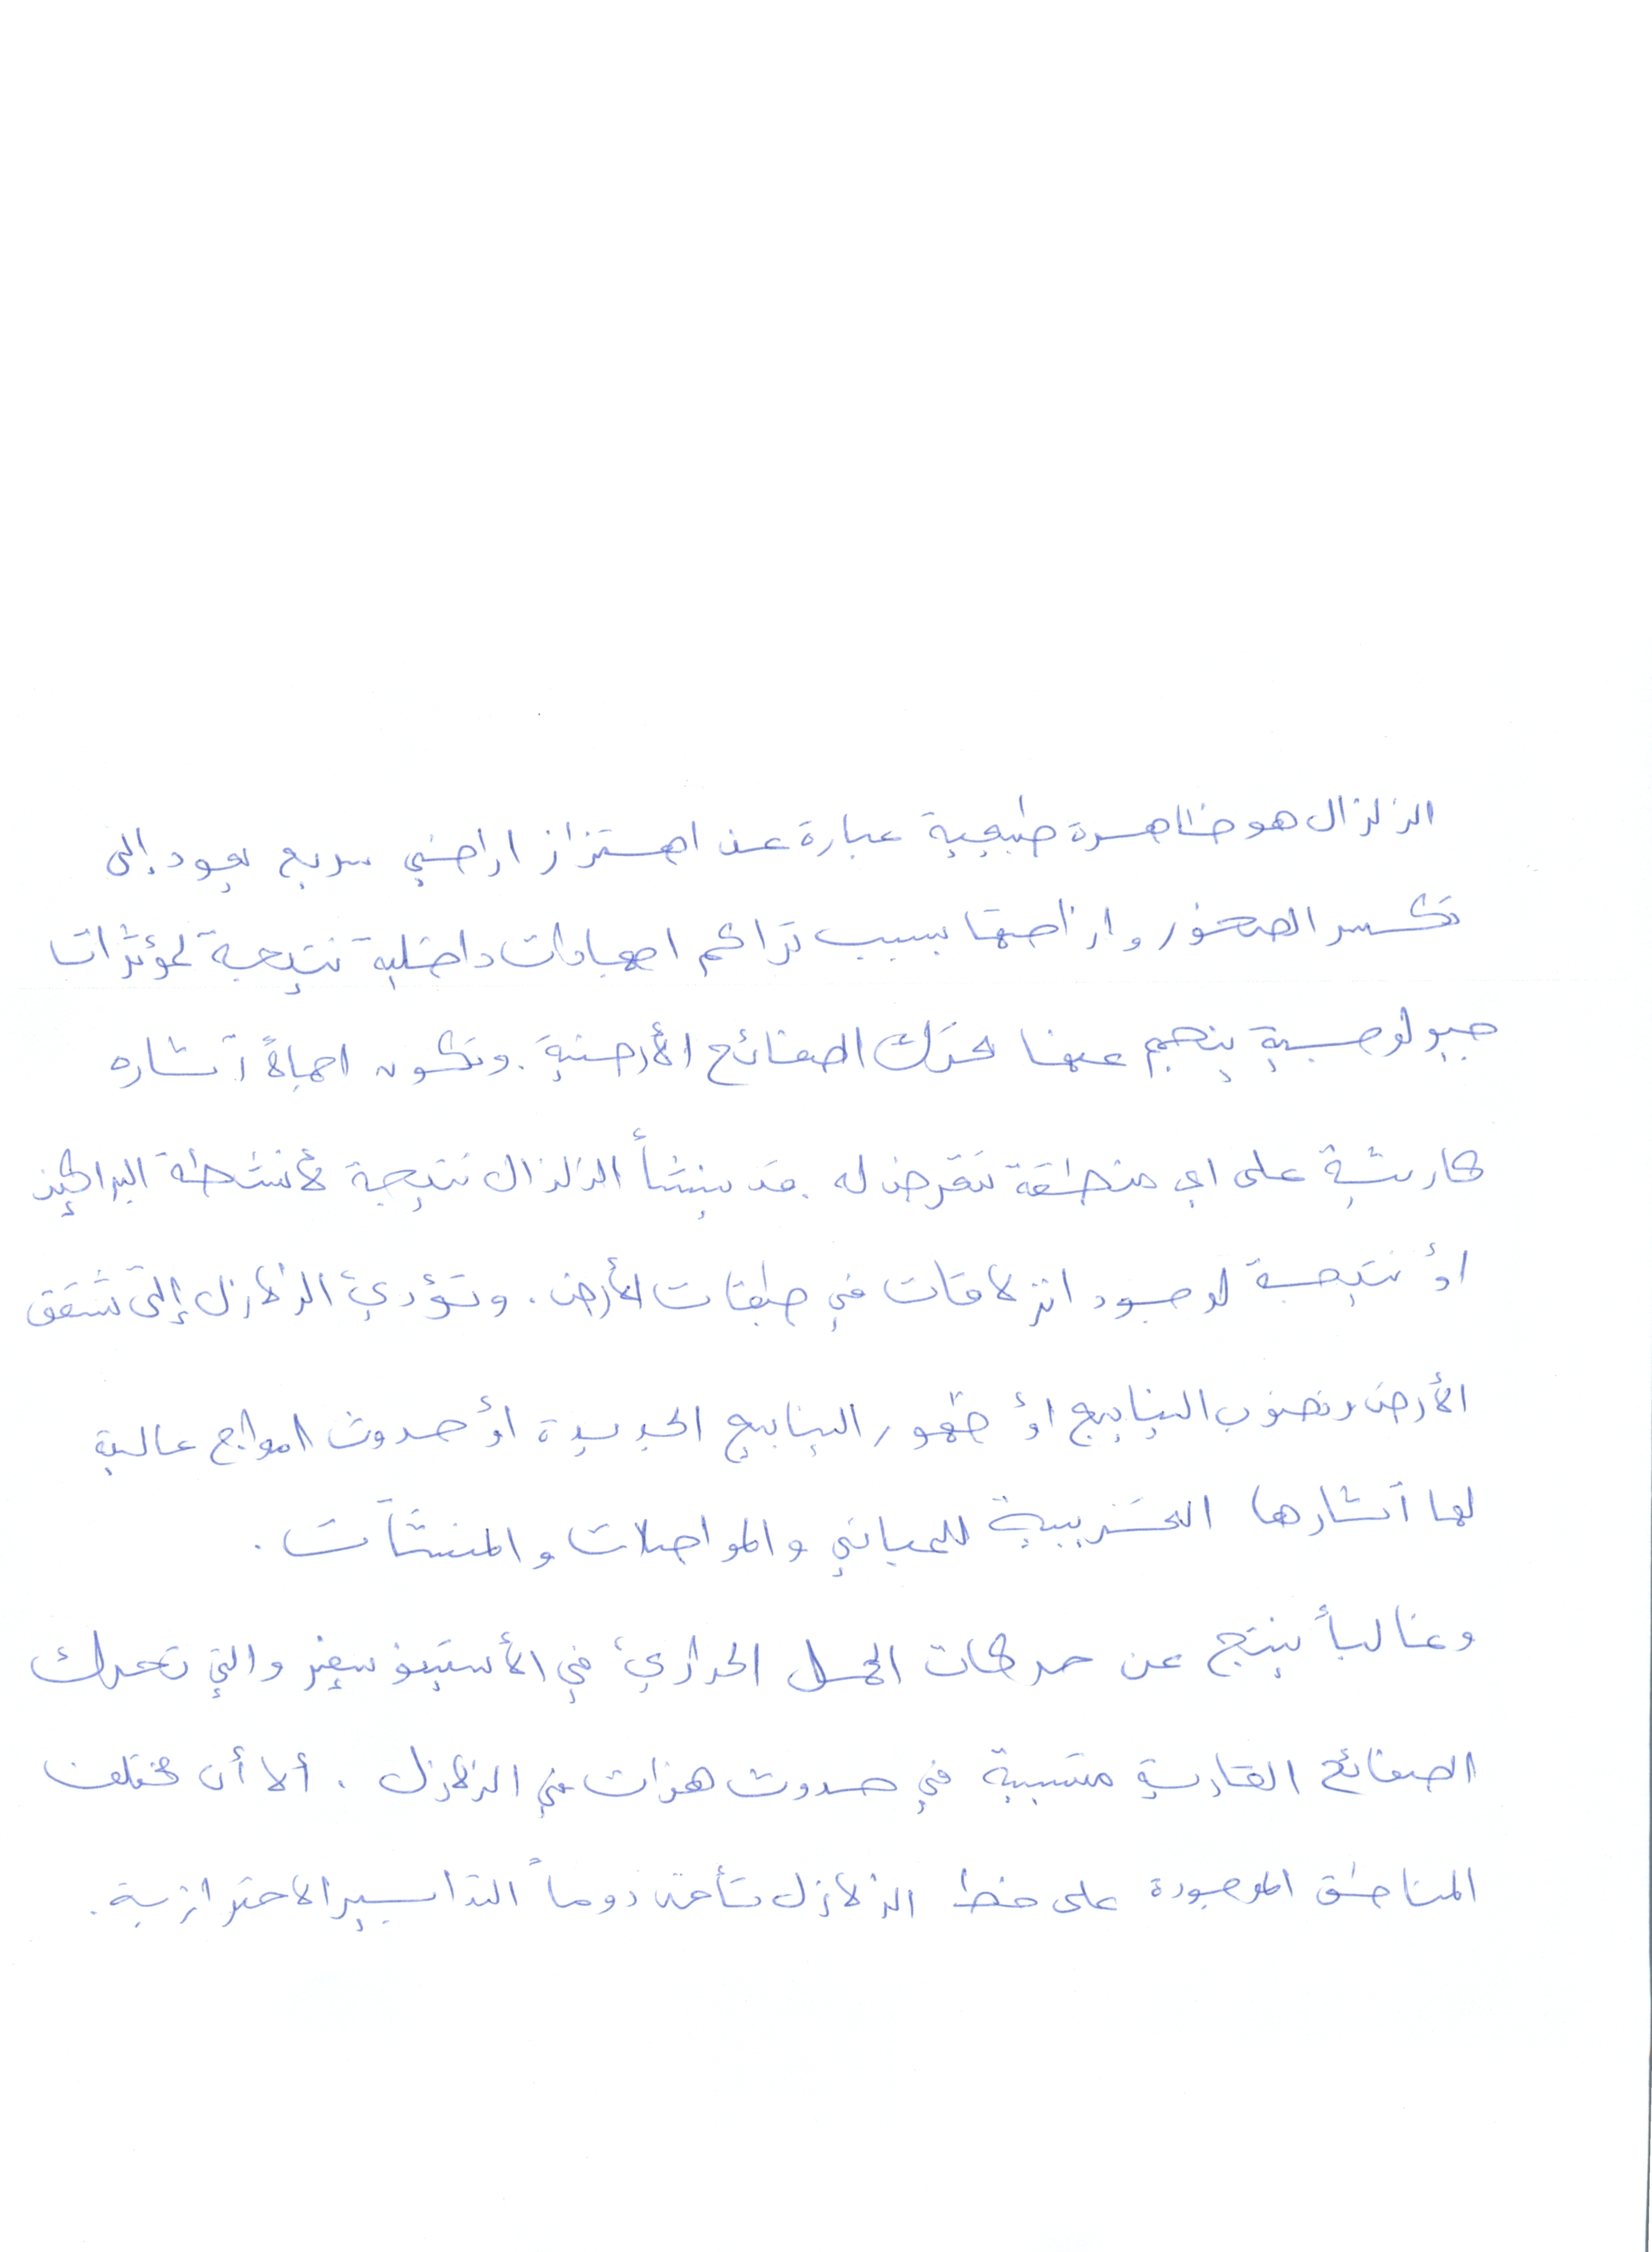 الزلزال هو ظاهرة طبيعية عبارة عن اهتزاز اراضي سريع يعود إلى
تكسر الصخور وازاحتها بسبب تراكم اجهادات داخلية نتيجة لمؤثرات
جيولوجية ينجم عنها تحرك الصفائح الأرضية. وتكون احياناً آثاره
كارثية على اي منطقة تتعرض له. قد ينشأ الزلزال نتيجة لأنشطة البراكين
أو نتيجة لوجود انزلاقات في طبقات الأرض. وتؤدي الزلازل إلى تشقق
الأرض ونضوب الينابيع أو ظهور الينابيع الجديدة أو حدوث امواج عالية
لها آثارها التخريبية للمباني والمواصلات والمنشآت.
وغالباً ينتج عن حركات الحمل الحراري في الأستينوسفير والتي تحرك
الصفائح القارية متسببة في حدوث هزات في الزلازل. ألا أن مختلف
المناطق الموجودة على خط الزلازل تأخذ دوماً التدابير الاحترازية.